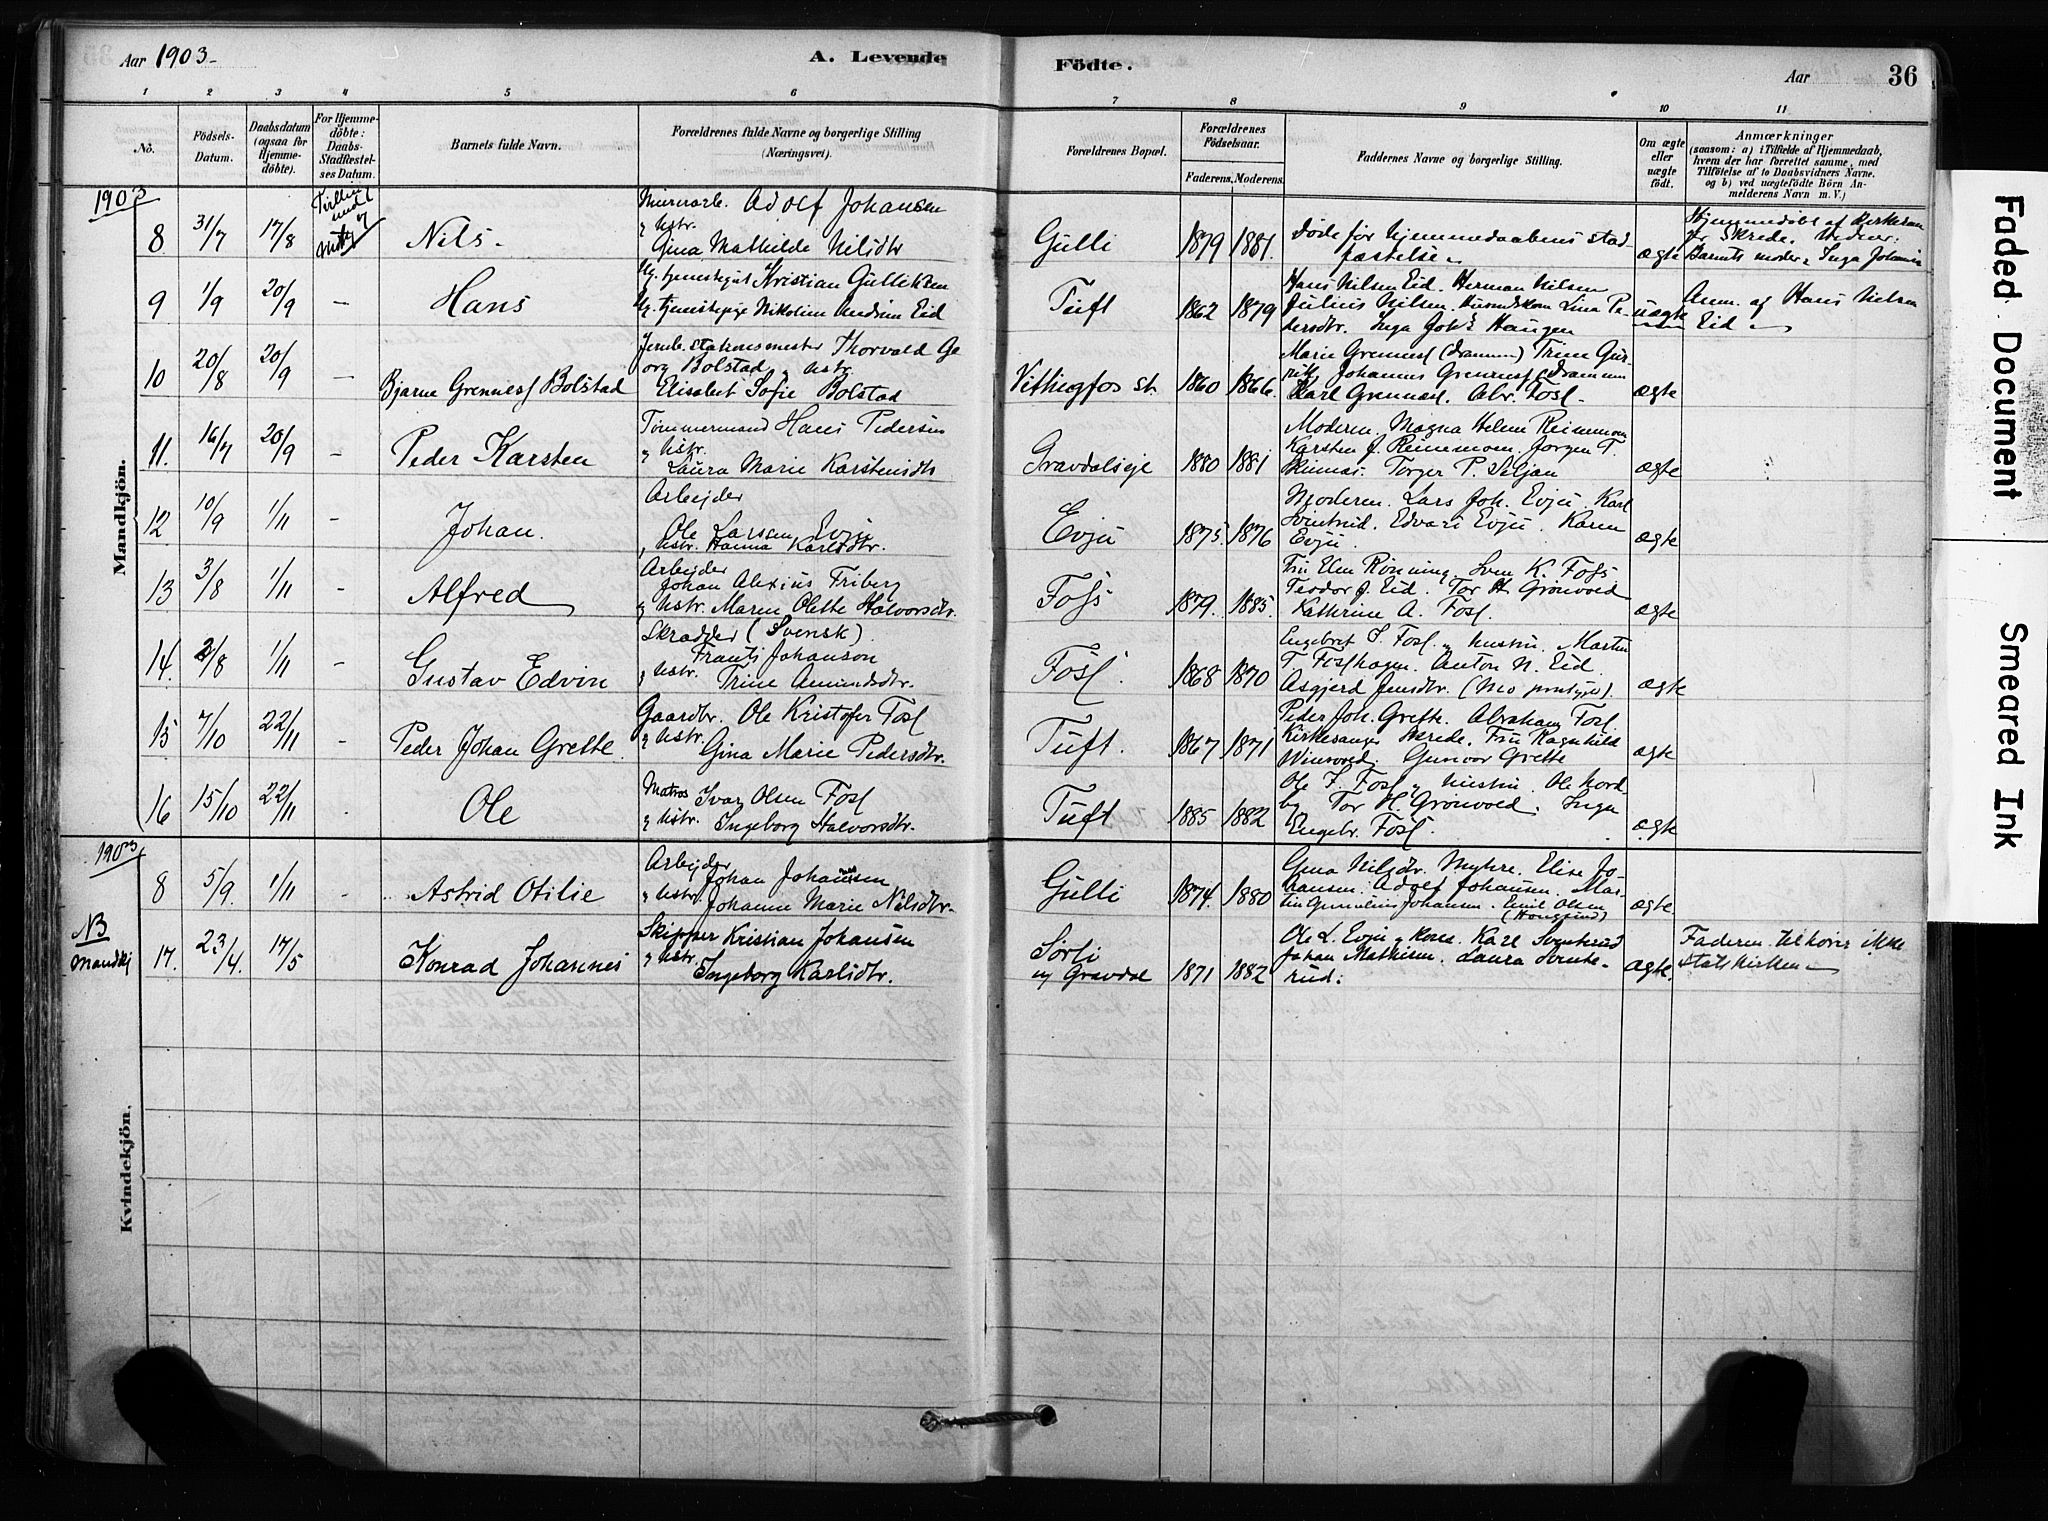 Aar 1903-
A. Levende
Födte.
Aar
36
1 2 3 4 5 6 7 8 9 10 11
No.
Födsels-
Datum.
Daabsdatum
(ogsaa for
Hjemme-
döbte).
For Hjemme-
döbte:
Daabs-
Stadfæstel-
ses Datum.
Barnets fulde Navn.
Forældrenes fulde Navne og borgerlige Stilling
(Næringsvei).
Forældrenes Bopæl.
Forældrenes
Födselsaar.
Faderens. Moderens.
Faddernes Navne og borgerlige Stilling.
Om ægte
eller
uægte
födt.
Anmærkninger
(saasom: a) i Tilfælde af Hjemmedaab,
hvem der har forrettet samme, med
Tilföielse af to Daabsvidners Navne.
og b) ved uægtefödte Börn An-
melderens Navn m. V.)
Mandkjön.
1903
8 31/7 17/8 Nils-
Adolf Johansen
" hstr.
Gina Mathilde Nilsdtr
Gulli 1879 1881.
Døde før hjemmedaabens stad-
fæstelse
ægte
Hjemmedøbt af Kirkesan
ger Skrede. Vidner:
Barnets moder, Inga Johansen
9 1/9 20/9 — Hans
Ug. tjenestegut Kristian Gulliksen
Ug. tjenestepige Nikoline Andrine Eid
Tuft 1862 1879
Hans Nilsen Eid. Herman Nilsen
Julius Nilsen. Lina Pe-
dersdtr. Inga Joh's Haugen
uægte
Anm. af Hans Nilsen
Eid
10 20/8 20/9 — Bjarne Grennes Bolstad
Jernb. stationsmester Thorvald Ge
org Bolstad " hstr.
Elisabet Sofie Bolstad
Vittingfos st. 1860 1866.
Marie Grennes (Drammen) Trine Gur
Johannes Grennes (Drammen
Karl Grennes. Abr. Fosl-
ægte
11. 16/7 20/9 - Peder Karsten
Tømmermand Hans Pedersen
" hstr.
Laura Marie Karstensdtr
Gravdalseje 1880 1881
Moderen. Magna Helene Reinemoen
Karsten J. Reinemoen. Jørgen T.
Torger P. Seljan
ægte
12 10/9 1/11 - Johan.
Arbejder
Ole Larssen Evju
" hstr. Hanna Karlsdtr.
Evju 1875. 1876
Moderen. Lars Joh. Evju. Karl
Sventerud. Edvart Evju. Karen
Evju.
ægte
13 3/8 1/11 - Alfred
Arbejder
Johan Alexius Friberg
" hstr. Maren Olette Halvorsdtr.
Foss 1879. 1885.
Fru Elen Rønning. Sven K. Foss
Teodor J. Eid. Tor H. Grønvold
Kathrine A. Fosl.
ægte
14. 2/8 1/11 - Gustav Edvin
Skrædder (Svensk).
Frants Johanson
" hstr. Trine Amundsdtr.
Fosl. 1868 1870
Engebret S. Fosl. " hustru. Marten
T. Foslhagen. Anton N. Eid
Asgjerd Jensdtr.
ægte
15 7/10 22/11 - Peder Johan Grette
Gaardbr. Ole Kristofer Fosl
" hstr. Gina Marie Pedersdtr.
Tuft. 1867 1871
Peder Joh. Grette. Abraham Fosl
Kirkesanger Skrede. Fru Ragnhild
Winsvold. Gunvor Grette
ægte
16 15/10 22/11 Ole
Matros Ivar Olsen Fosl
" hstr. Ingeborg Halvorsdtr.
Tuft 1885 1882
Ole I. Fosl " hustru. Ole Nord
by Tor H. Grønvold. Inger
Engebr. Fosl.
ægte
1903
8 5/9. 1/11 - Astrid Otilie
Arbejder
Johan Johannesen
" hstr. Johanne Marie Nilsdtr-
Gulli 1874. 1880
Gina Nilsdtr. Myhre. Elise Jo-
hansen. Adolf Johansen. Mar-
tin Johansen. Emil Olsen
(Hougsund)
ægte.
NB
Mandkj 17. 23/4. 17/5 Konrad Johannes
Skipper Kristian Johansen
" hstr. Ingeborg Karlsdtr.
Sørli
u/ Gravdal 1871 1882
Ole L. Evju " kone. Karl Sventerud
Johan Mathisen. Laura Svente-
rud.
ægte.
Faderen tilhører ikke
Statskirken
Kvindekjön.
Faded Document
Smeared Ink